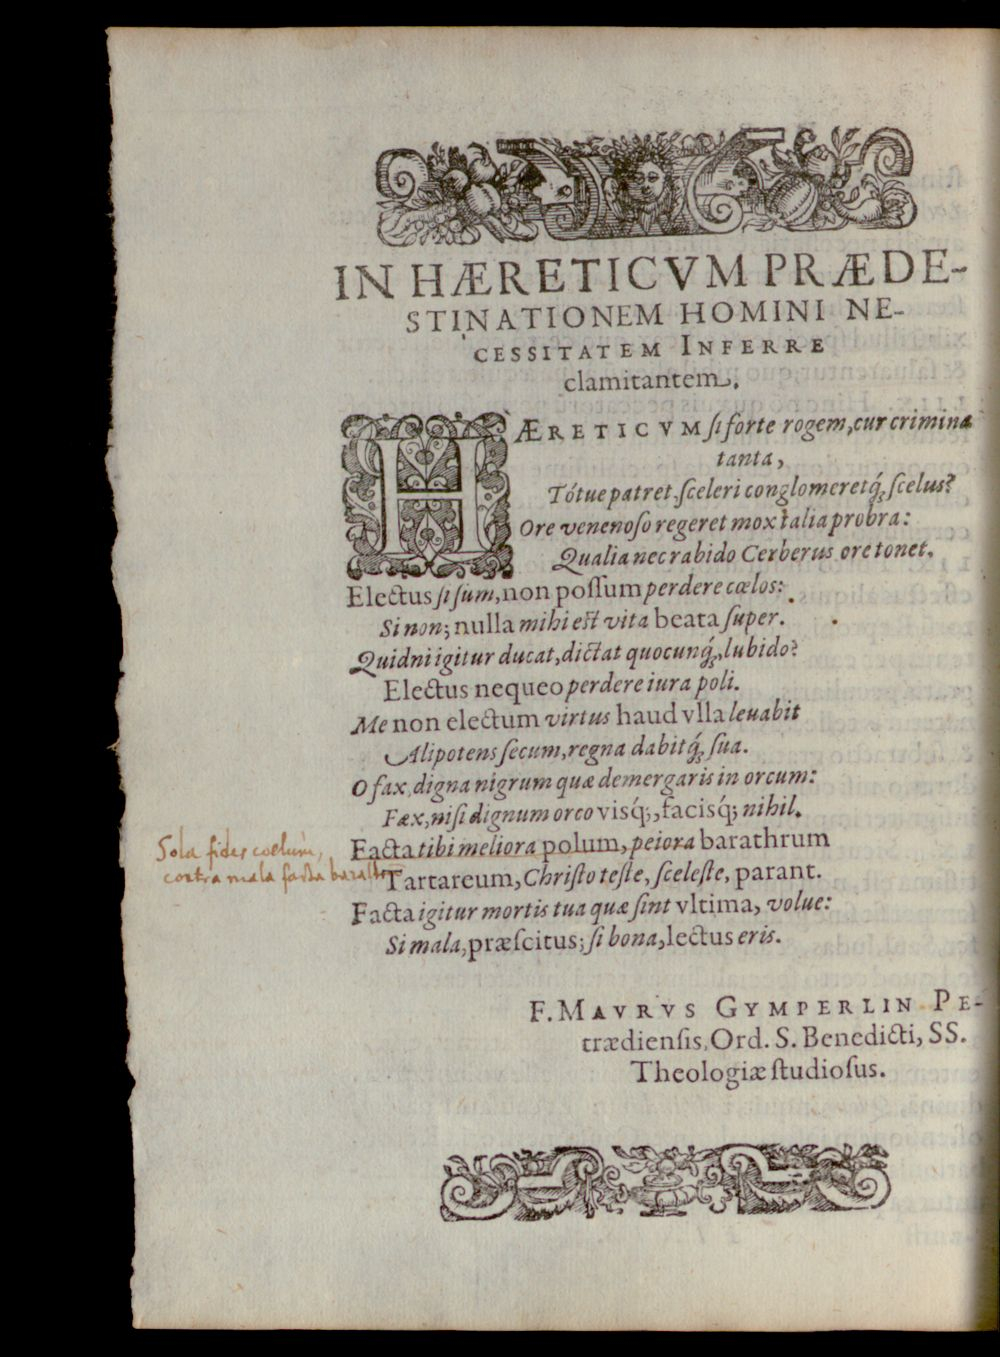 IN HÆRETICVM PRÆDE-
STINATIONEM HOMINI NE-
CESSITATEM INFERRE
clamitantem.
HÆRETICVM ſi forte rogem, cur crimina
tanta,
Tótue patret, ſceleri conglomeretq́; ſcelus?
Ore venenoſo regeret mox talia probra:
Qualia nec rabido Cerberus ore tonet.
Electus ſi ſum, non poſſum perdere cœlos:
Si non; nulla mihi eſt vita beata ſuper.
Quidni igitur ducat, dictat quocunq́;, lubido?
Electus nequeo perdere iura poli.
Me non electum virtus haud vlla leuabit
Alipotens ſecum, regna dabitq́; ſua.
O fax, digna nigrum quæ demergaris in orcum:
Fæx, niſi dignum orco visq́;, facisq́; nihil.
Facta tibi meliora polum, peiora barathrum
Tartareum, Chriſto teſte, ſceleſte, parant.
Facta igitur mortis tua quæ ſint vltima, volue:
Si mala, præſcitus; ſi bona, lectus eris.
Sola fides coelum,
contra mala facta
F. MAVRVS GYMPERLIN PE-
trædienſis, Ord. S. Benedicti, SS.
Theologiæ ſtudioſus.